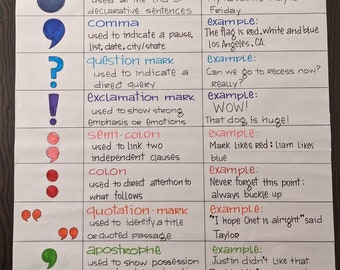 declarative sentences
Friday
comma
used to indicate a pause,
list, date, city/state
example:
The flag is red, white and blue
Los Angeles, CA
?
question mark
used to indicate
a direct query
example:
Can we go to recess now?
really?
!
exclamation mark
used to show strong
emphasis or emotions
example:
WOW!
That dog is huge!
;
semi-colon
used to link two
independent clauses
example:
Mark likes red; Liam likes
blue
:
colon
used to direct attention to
what follows
example:
Never forget this point:
always buckle up
" "
quotation mark
used to identify a title
or quoted passage
example:
"I hope Chet is alright" said
Taylor
'
apostrophe
used to show possession
example:
Justin didn't like that